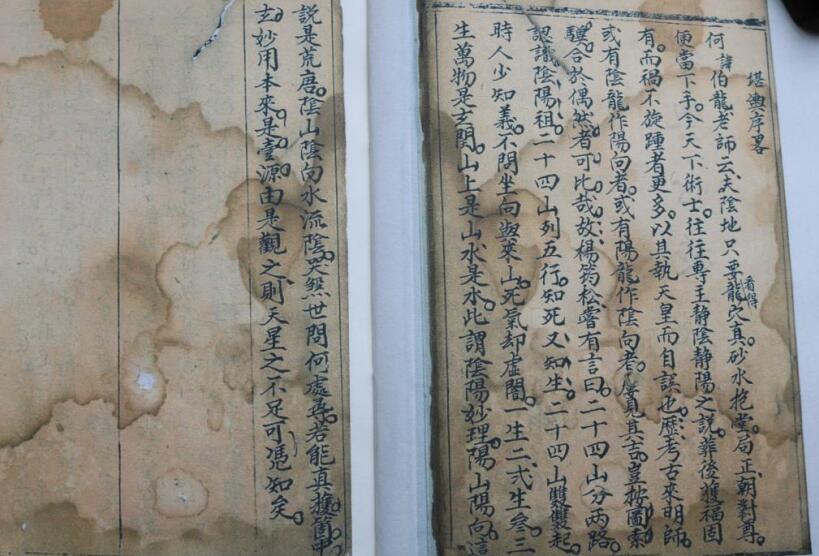 堪輿序畧
何諱伯龍老師云天陰地只要看得龍穴真砂水抱堂局正朝對尊
便當下手今天下術士往往專主靜陰靜陽之說葬後獲福固
有而禍不旋踵者更多以其執天皇而自誤也歷考古來明師
或有陰龍作陽向者或有陽龍作陰向者屢見其吉豈按圖索
驥合於偶然者可比哉故楊筠松嘗有言曰二十四山分兩路
認識陰陽祖二十四山列五行知死又知生二十四山雙雙起
時人少知義不問坐向與來山死氣却虛閣一生二弍生叄三
生萬物是玄関山上是山水是水此謂陰陽妙理陽山陽向這
說是荒唐陰山陰向水流陰哭煞世間何處尋若能真㨿箇中
玄妙用本來是壹源由是觀之則天星之不足可憑知矣